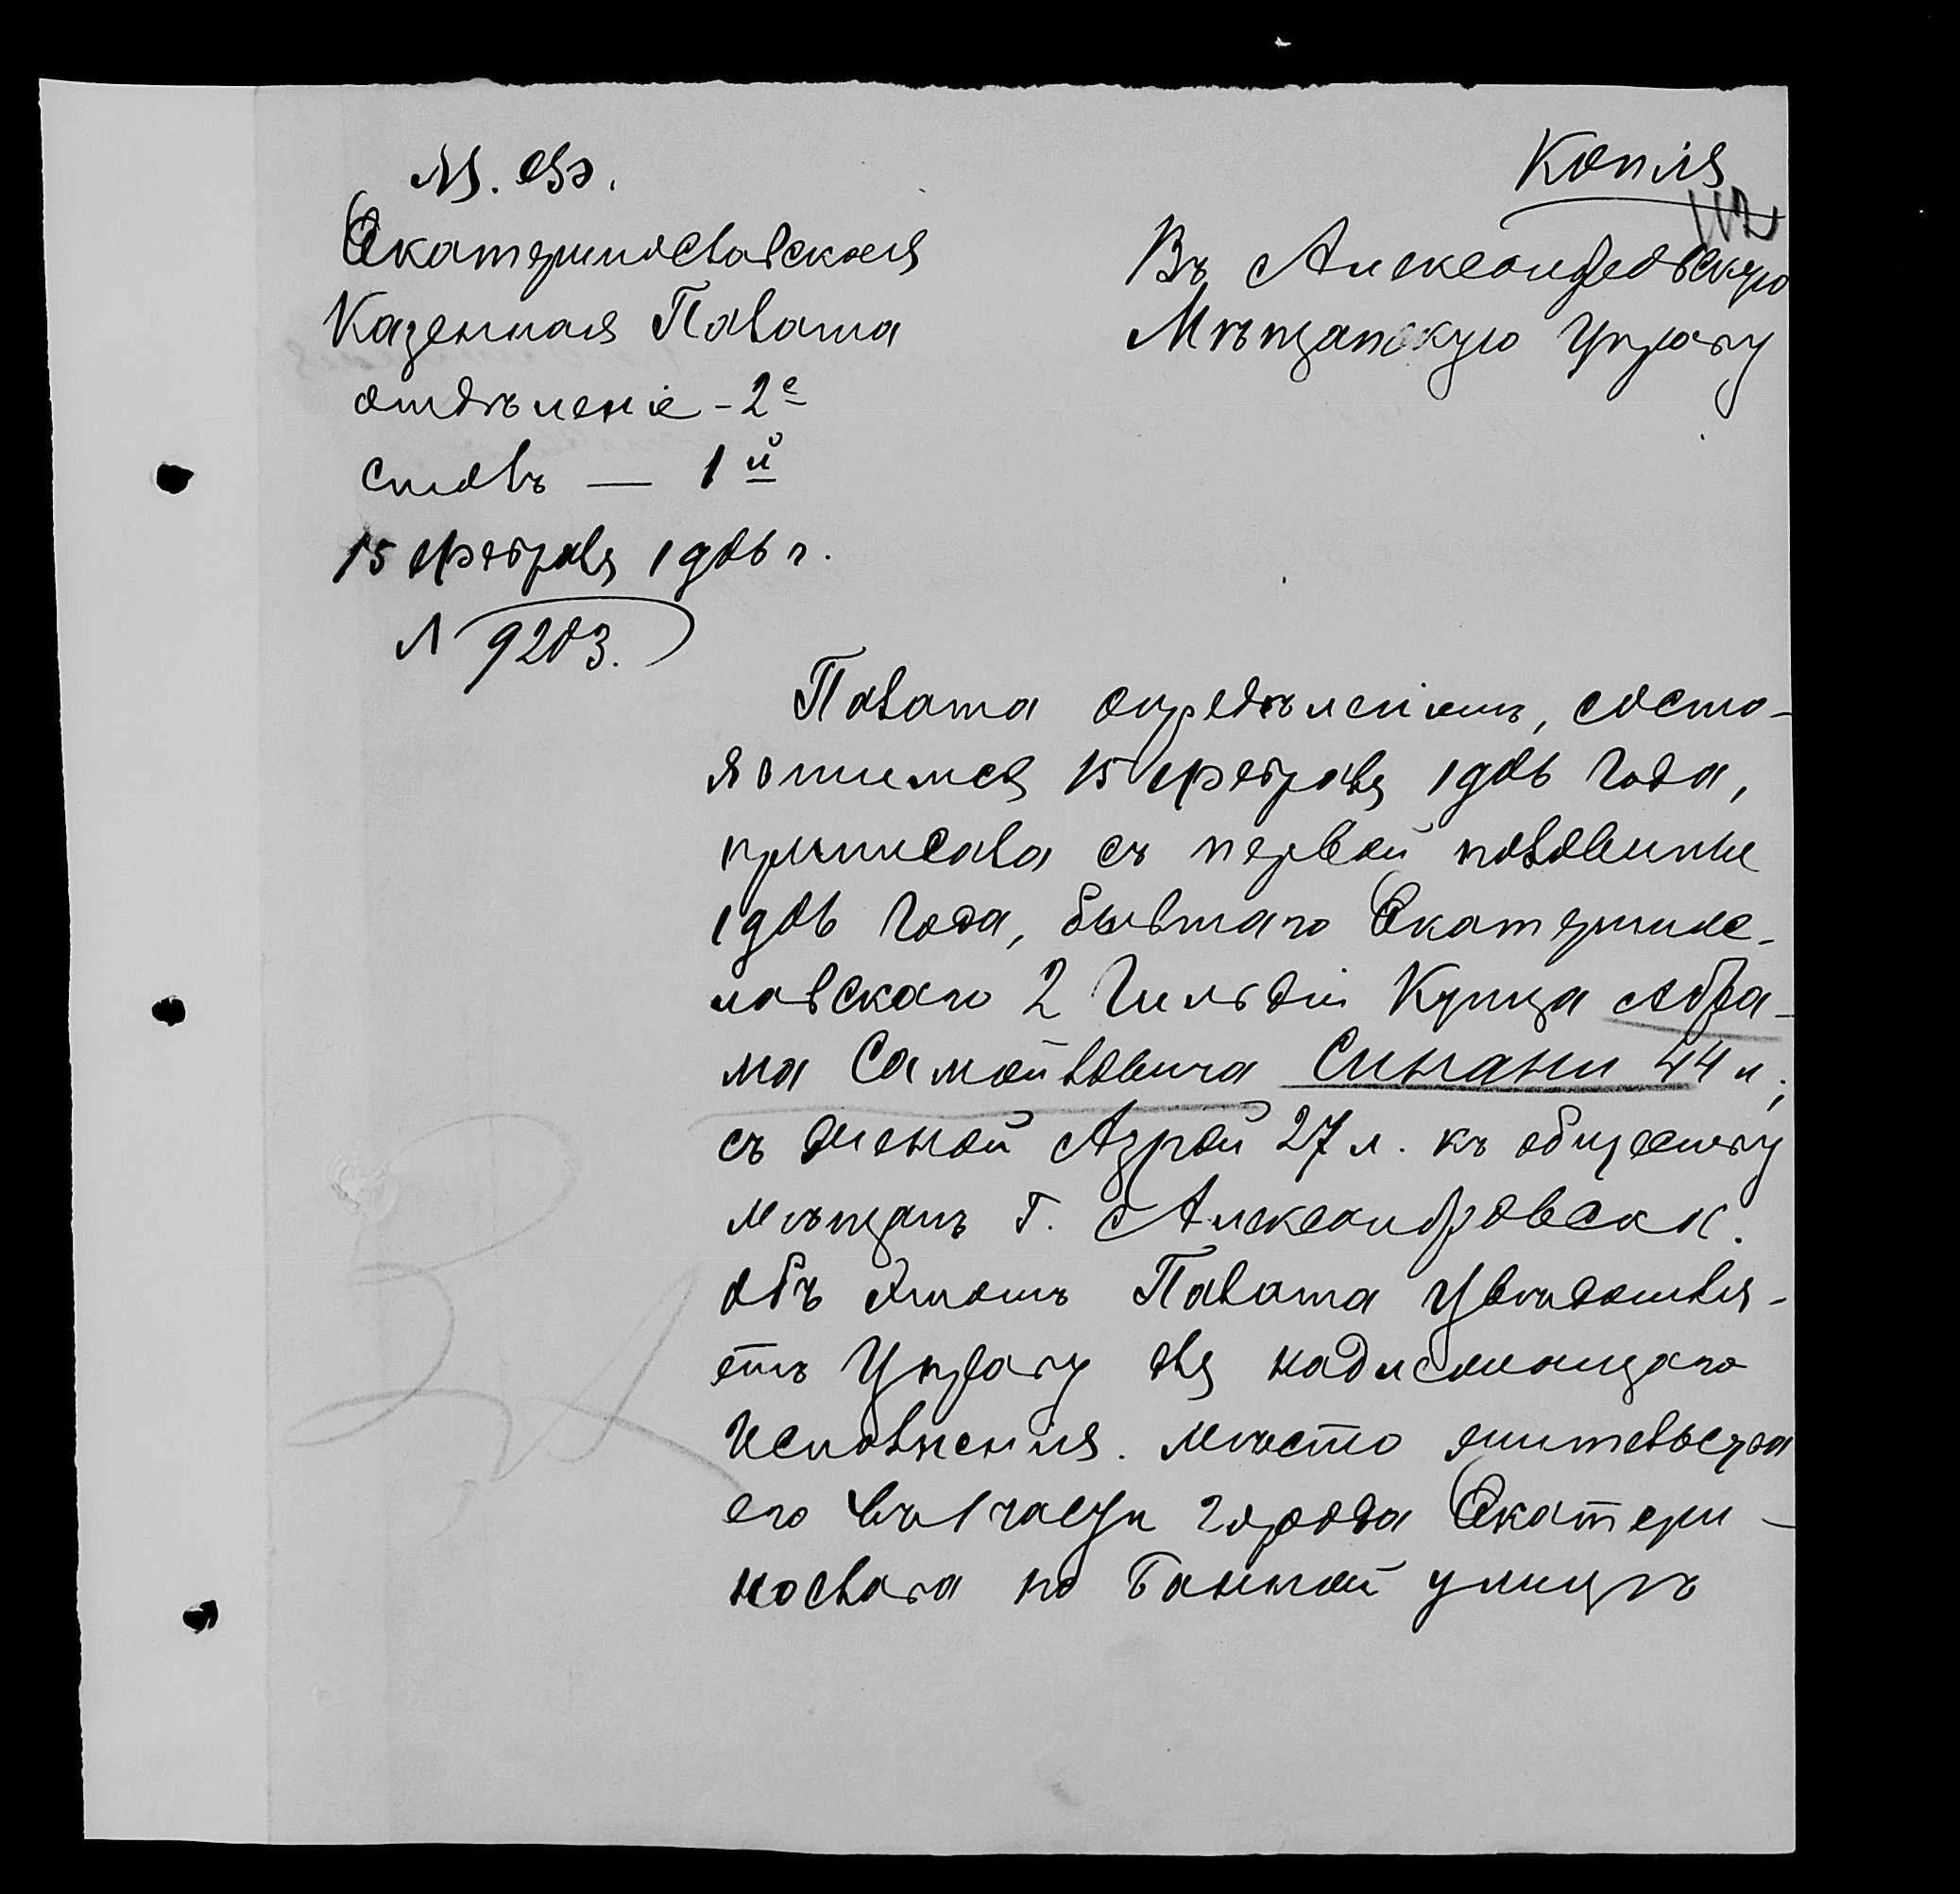 М. Ф.
Копія
112
Екатеринославская
Казенная Палата
отдѣленіе - 2е
столъ — 1й
15 февраля 1906 г.
№ 9203.
Въ Александровскую
Мѣщанскую Управу
Палата опредѣленіемъ, состо-
явшимся 15 февраля 1906 года,
причислила съ первой половины
1906 года, бывшаго Екатеринос-
лавскаго 2 Гильдіи Купца Абра-
ма Самойловича Синани 44 л.,
съ женой Азрой 27 л. къ обществу
мѣщанъ г. Александровска.
Объ этомъ Палата увѣдомля-
етъ Управу для надлежащаго
исполненія. Мѣсто жительства
его въ 1 части города Екатери-
нослава по Банной улицѣ